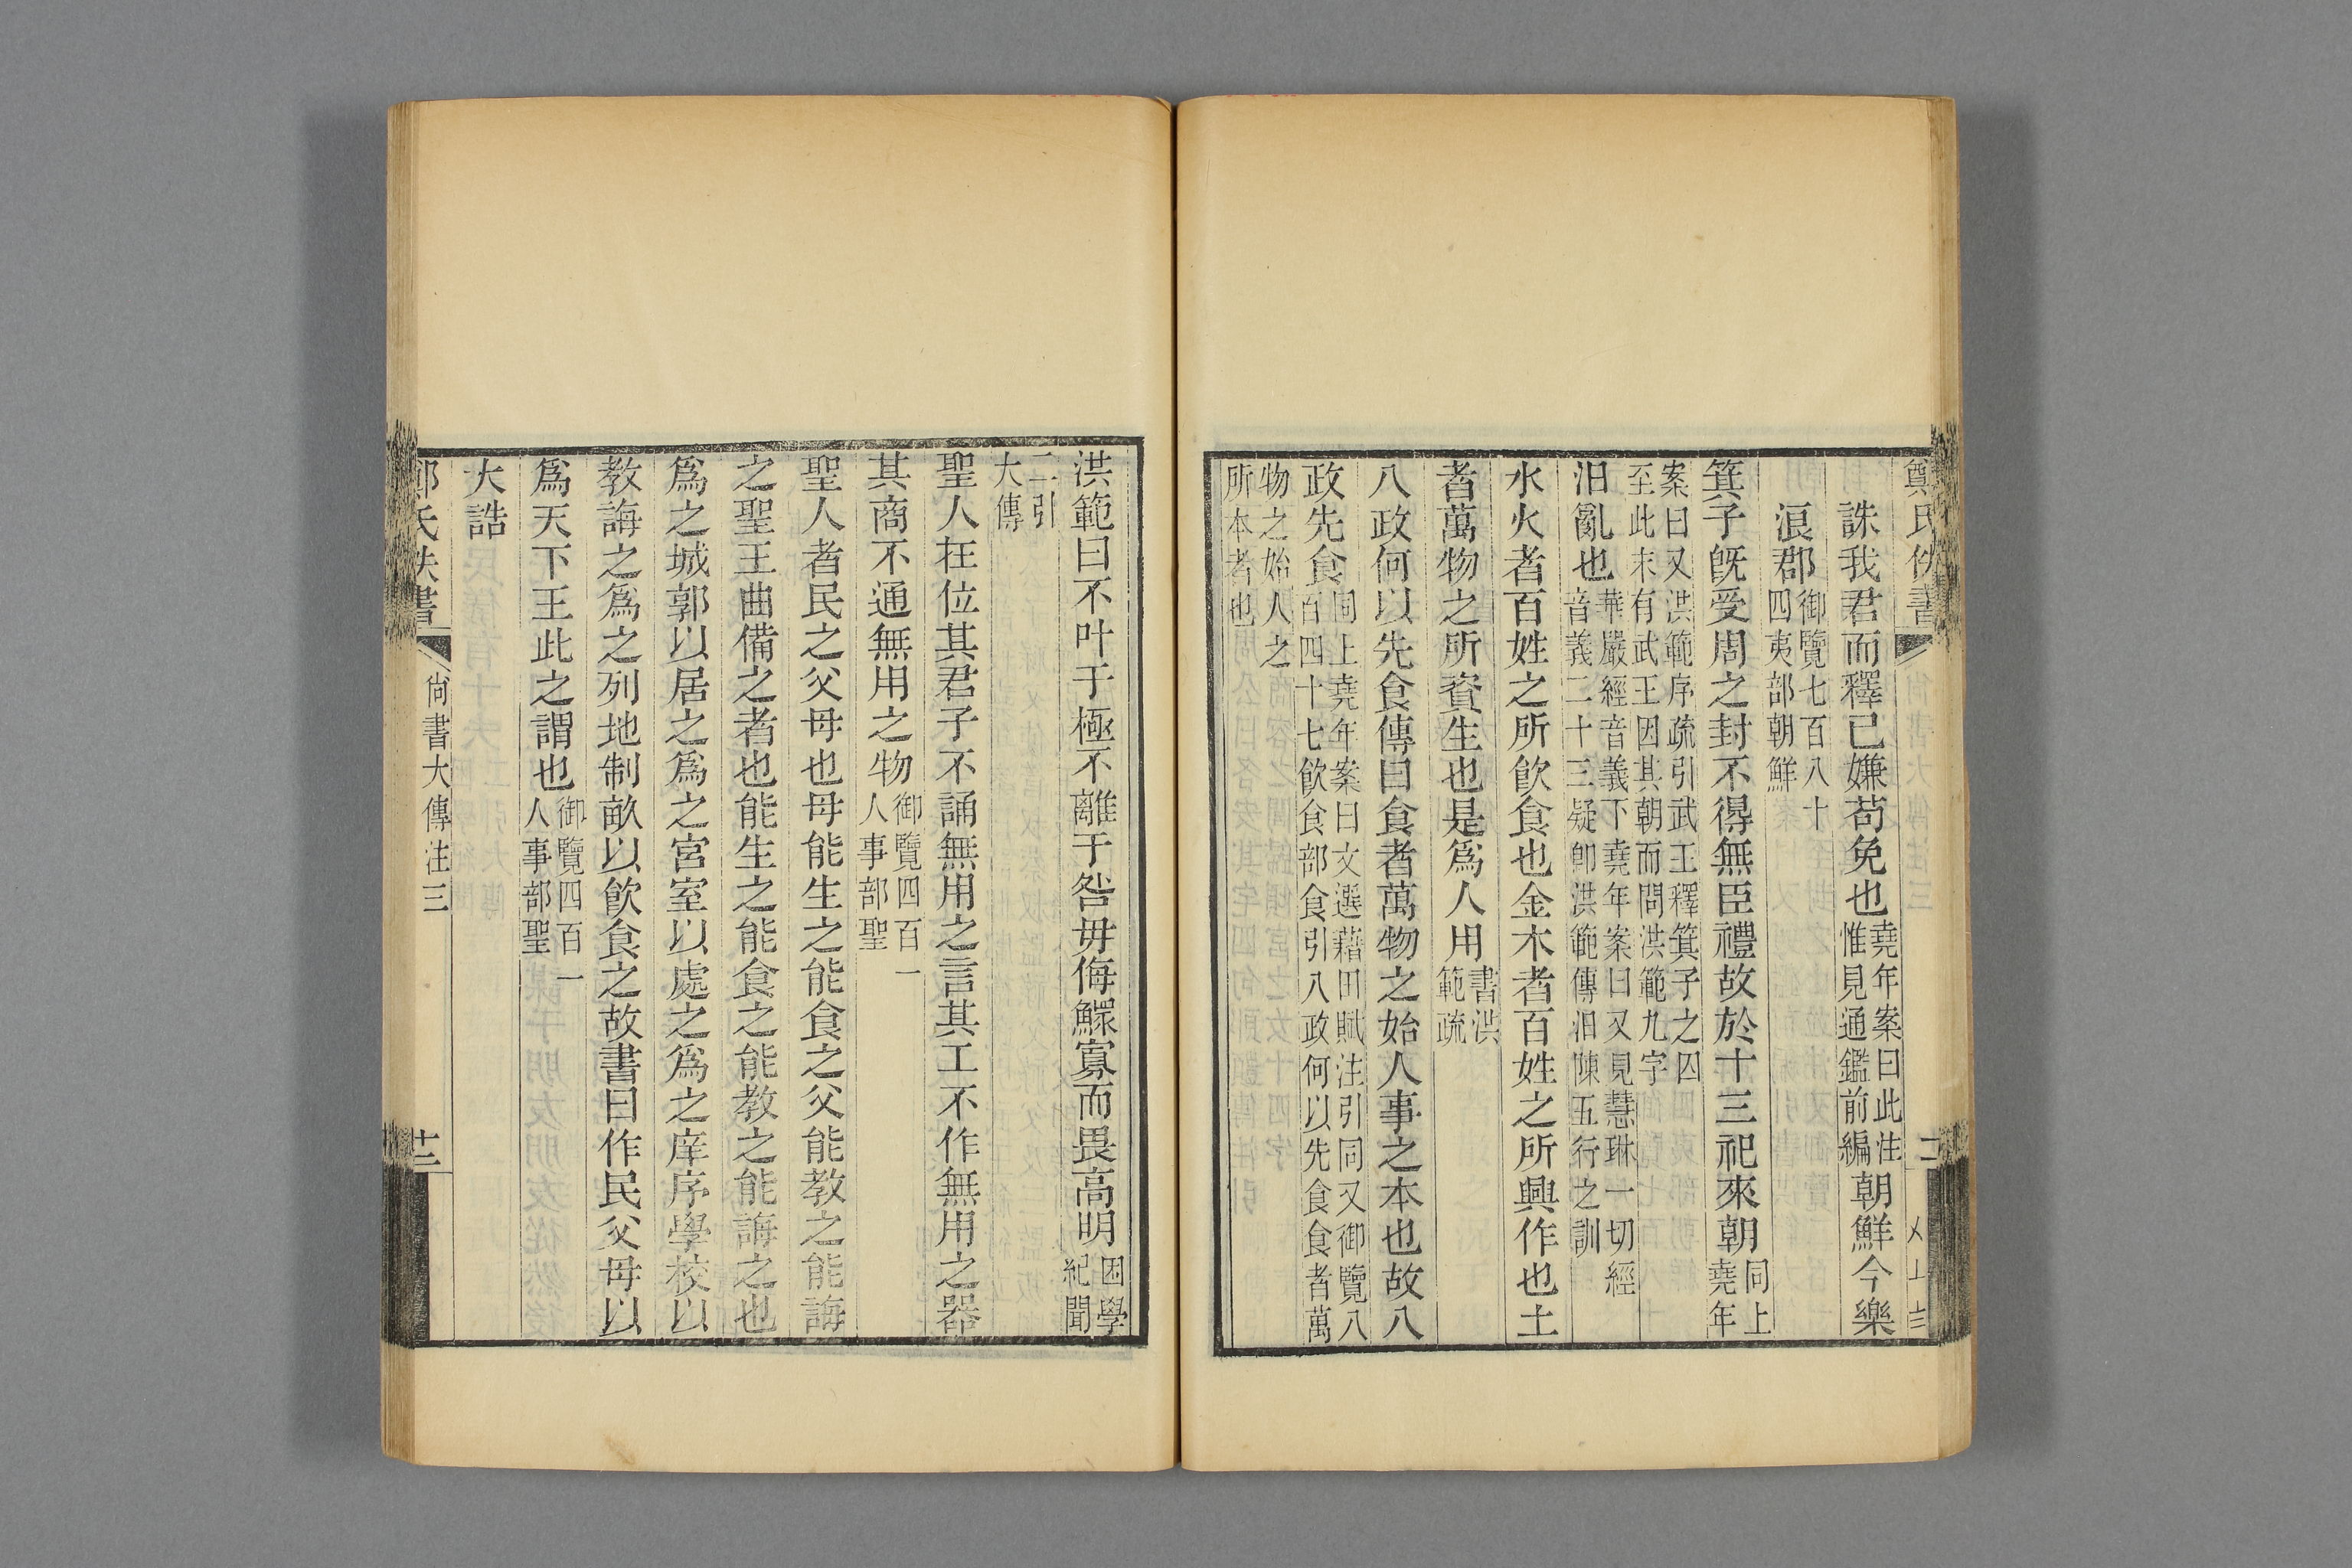 鄭氏佚書
誅我君而釋已嫌苟免也堯年案曰此注惟見通鑑前編朝鮮今樂
浪郡御覽七百八十四夷部朝鮮
箕子旣受周之封不得無臣禮故於十三祀來朝同上堯年
案曰又洪範序疏引武王釋箕子之囚至此末有武王因其朝而問洪範九字
汨亂也華嚴經音義下堯年案曰又見慧琳一切經音義二十三疑卽洪範傳汨陳五行之訓
水火者百姓之所飮食也金木者百姓之所興作也土
者萬物之所資生也是爲人用書洪範疏
八政何以先食傳曰食者萬物之始人事之本也故八
政先食同上堯年案曰文選藉田賦注引同又御覽八百四十七飮食部食引八政何以先食食者萬
物之始人之所本者也
洪範曰不叶于極不離于咎毋侮鰥寡而畏高明困學紀聞
二引大傳
聖人在位其君子不誦無用之言其工不作無用之器
其商不通無用之物御覽四百一人事部聖
聖人者民之父母也母能生之能食之父能教之能誨
之聖王曲備之者也能生之能食之能教之能誨之也
爲之城郭以居之爲之宮室以處之爲之庠序學校以
教誨之爲之列地制畝以飮食之故書曰作民父母以
爲天下王此之謂也御覽四百一人事部聖
大誥
鄭氏佚書 尙書大傳注三 十二